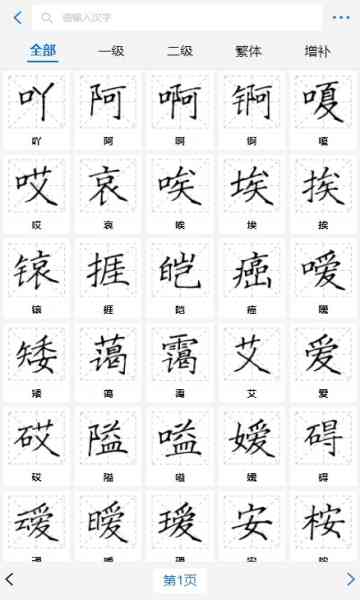 请输入汉字
全部 一级 二级 繁体 增补
吖 阿 啊 锕 嗄
吖 阿 啊 锕 嗄
哎 哀 唉 埃 挨
哎 哀 唉 埃 挨
锿 捱 皑 癌 嗳
锿 捱 皑 癌 嗳
矮 蔼 霭 艾 爱
矮 蔼 霭 艾 爱
砹 隘 嗌 嫒 碍
砹 隘 嗌 嫒 碍
叆 暧 瑷 安 桉
第1页